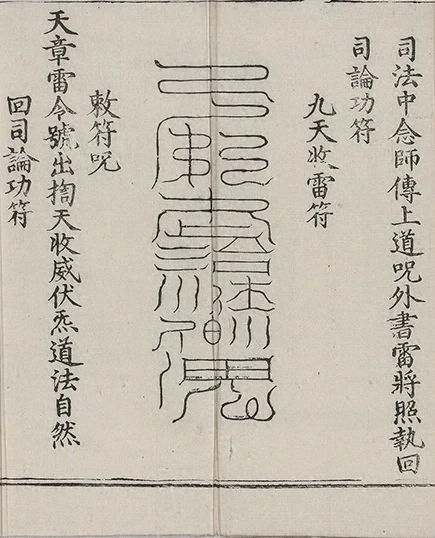 司法中念師傳上道呪外書雷將照執回
司論功符
九天收雷符
敕符呪
天章雷令號出掐天收威伏炁道法自然
回司論功符